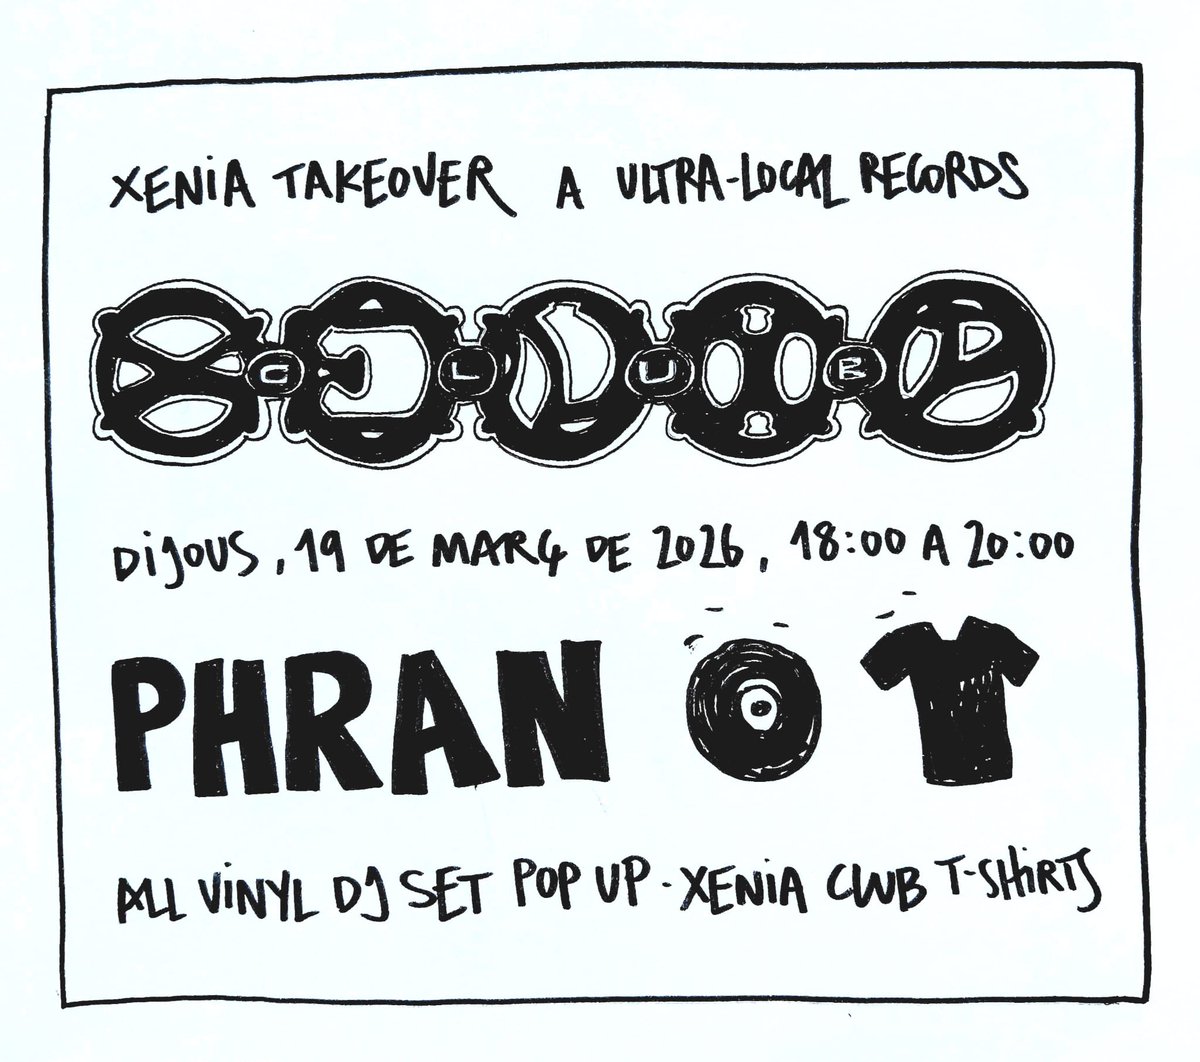 XENIA TAKEOVER A ULTRA-LOCAL RECORDS
XENIA
CLUB
DIJOUS, 19 DE MARÇ DE 2026, 18:00 A 20:00
PHRAN
ALL VINYL DJ SET POP UP - XENIA CLUB T-SHIRTS